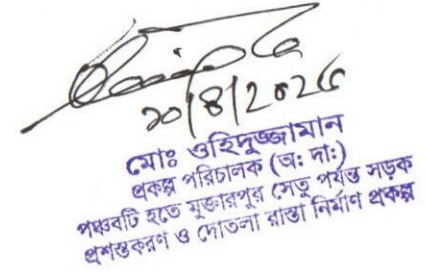 মোঃ ওহিদুজ্জামান
প্রকল্প পরিচালক (অ: দা:)
পঞ্চবটি হতে মুক্তারপুর সেতু পর্যন্ত সড়ক
প্রশস্তকরণ ও দোতলা রাস্তা নির্মাণ প্রকল্প